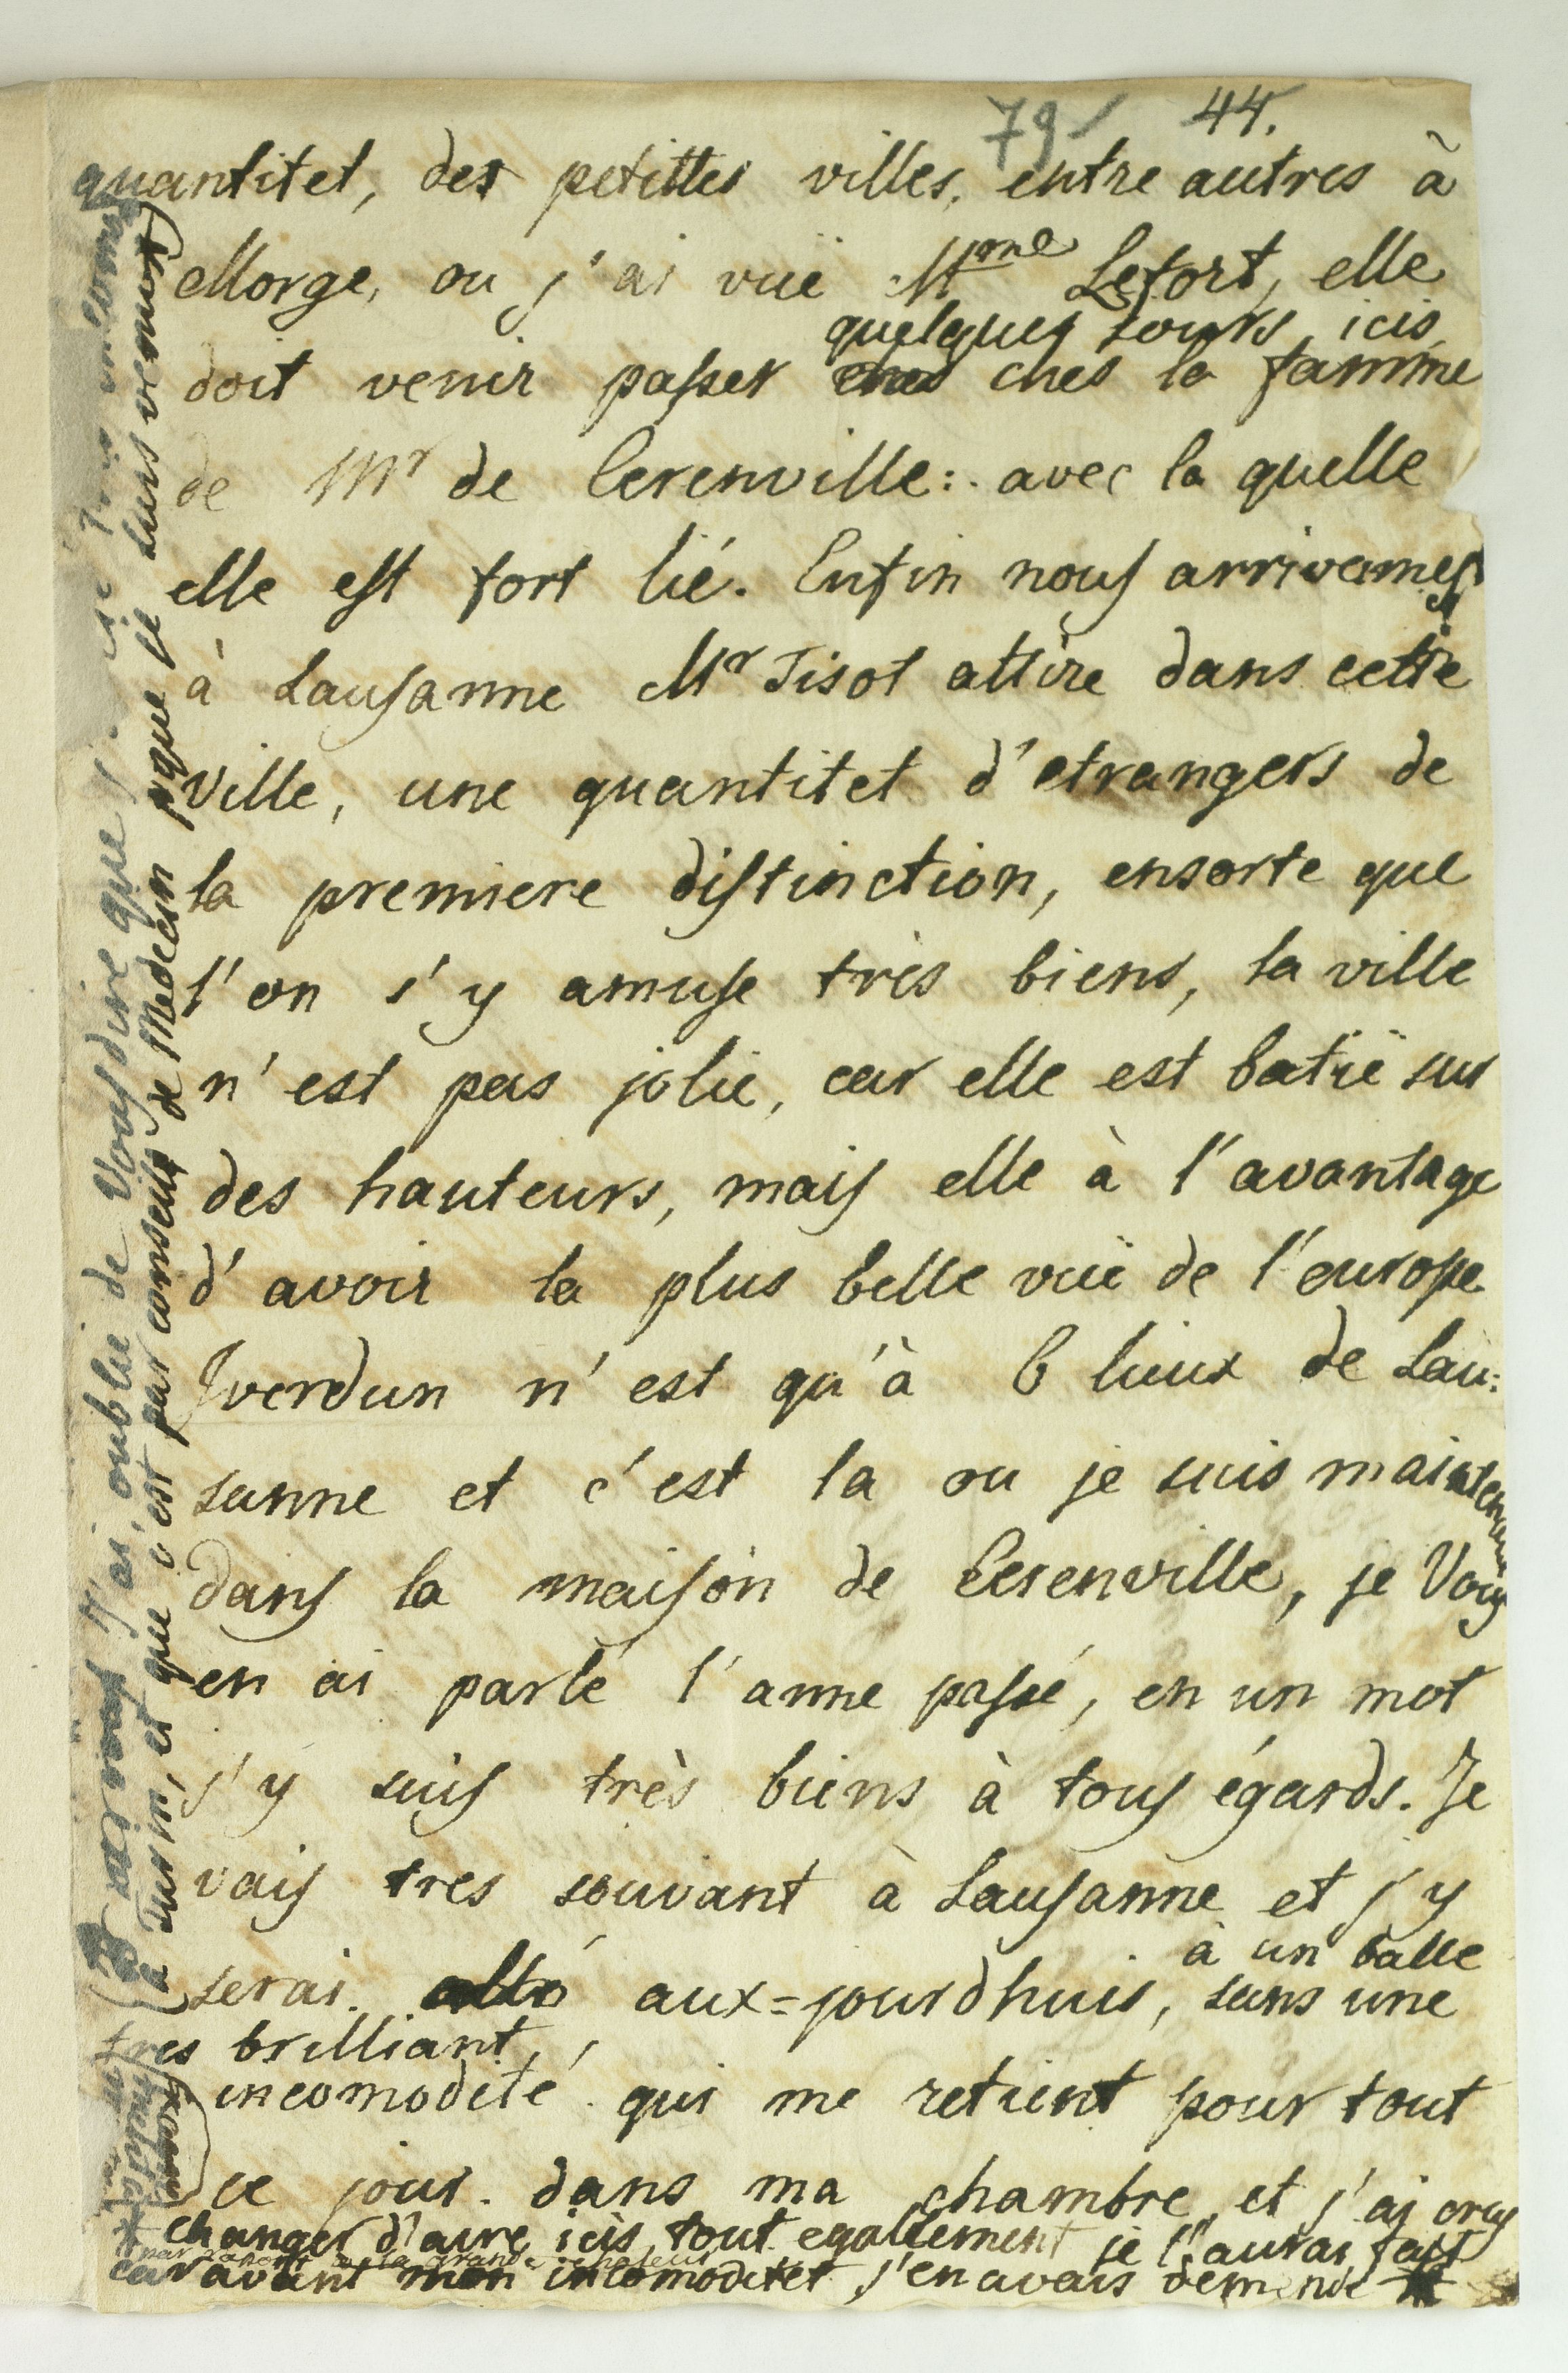 79 44.
quantitet, des petittes villes, entre autres à
Morge, ou j'ai vuë Mme Lefort, elle
quelques jours icis
doit venir passer ches la famme
de Mr de Cerenville: avec la quelle
elle est fort lié. Enfin nous arrivames
à Lausanne Mr Tisot attire dans cette
Ville, une quantitet d'etrangers de
la premiere distinction, ensorte que
l'on s'y amuse très biens, la ville
n'est pas jolie, car elle est batië sur
des hauteurs, mais elle à l'avantage
d'avoir la plus belle vuë de l'europe
Iverdun n'est qu'à 6 lieux de Lau:
sanne et c'est la ou je suis maintenant
dans la maison de Cerenville, je Vous
en ai parlé l'anne passé, en un mot
j'y suis très biens à tous égards. Je
vais tres souvant à Lausanne et j'y
à un balle
serai aux=jourdhuis, sans une
tres brilliant,
incomodité qui me retient pour tout
ce jour dans ma chambre, et j'ai crus
changer d'aire icis tout egallement je l'aurai fait
par raport à la grande chaleur
car avant mon incomoditet j'en avais demende
J'ai oublié de Vous dire que
à Turin, et que c'est par conseils de Medecin que je suis venus